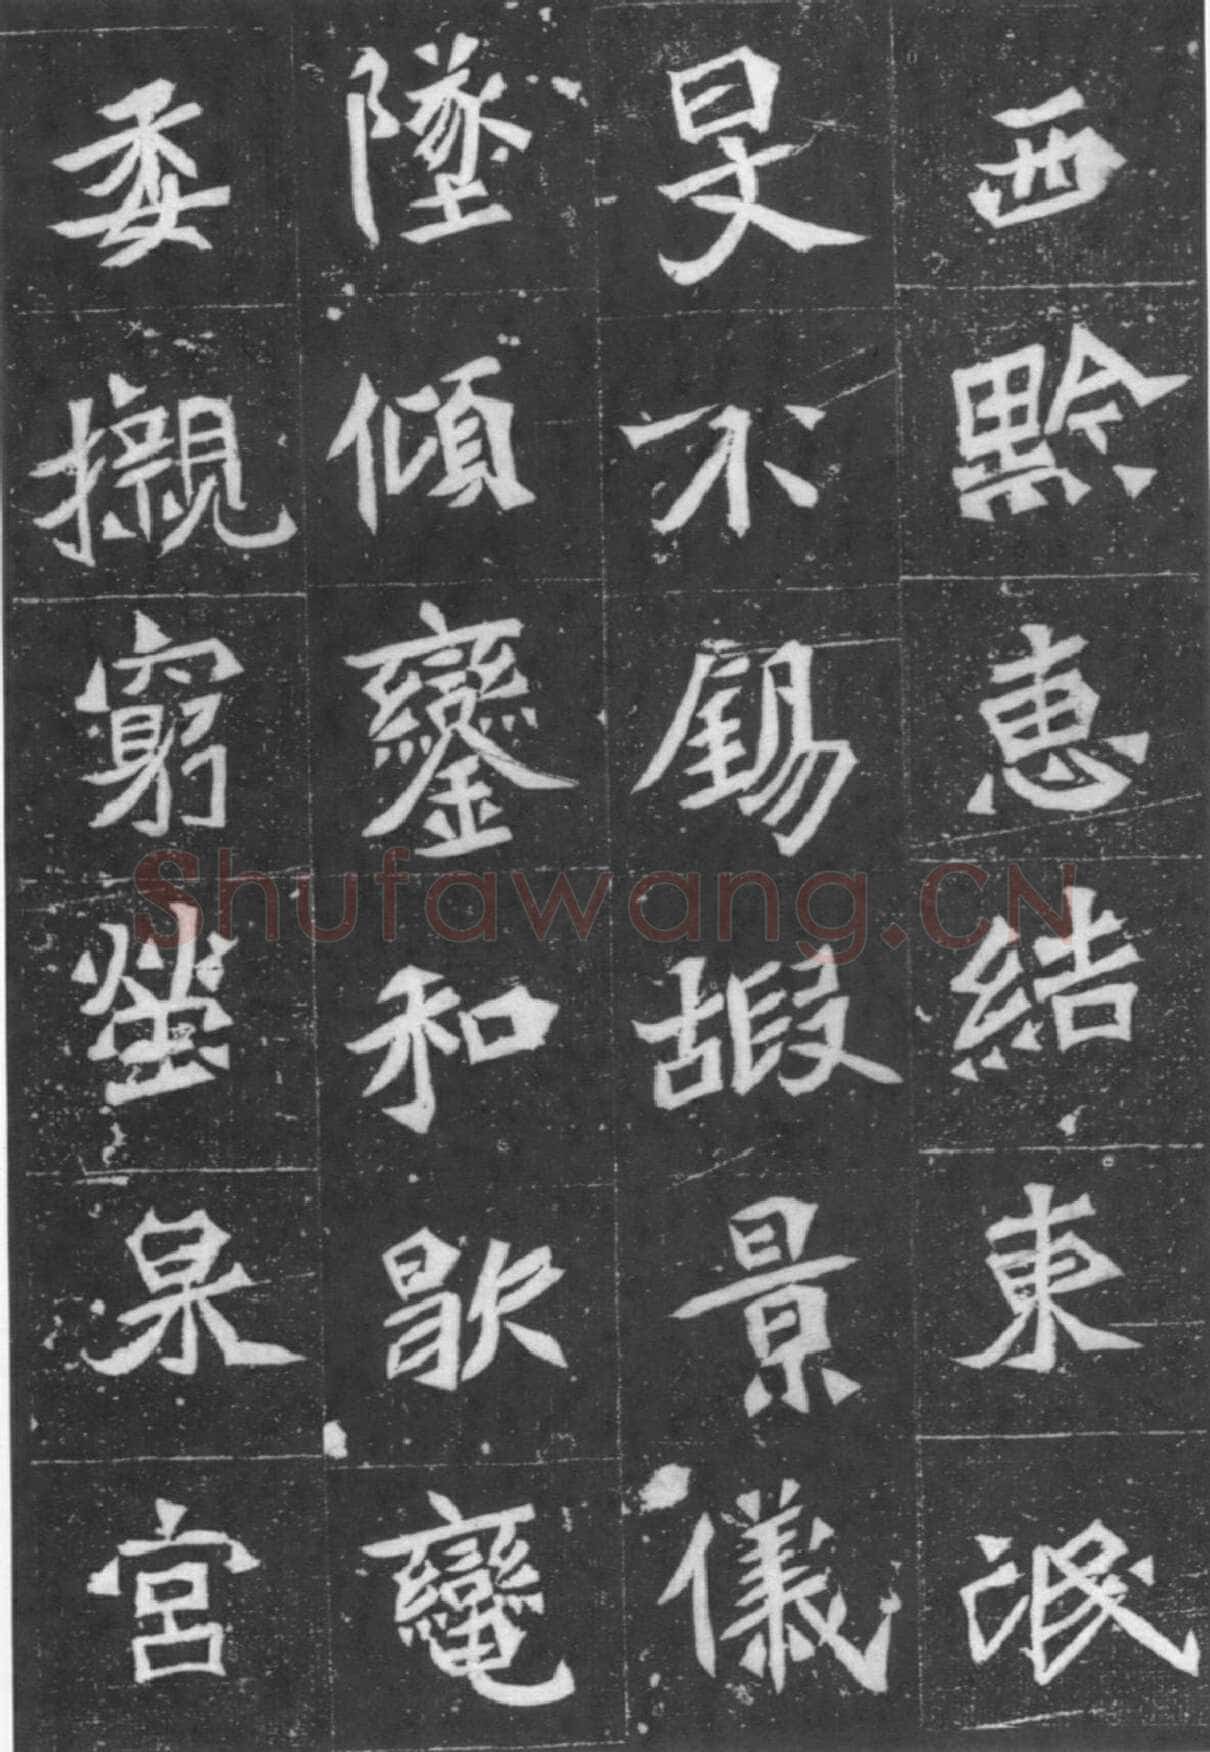 西黔惠結東泯
旻不錫嘏景儀
墜傾鑾和歇轡
委櫬窮塋泉宮
Shufawang.CN